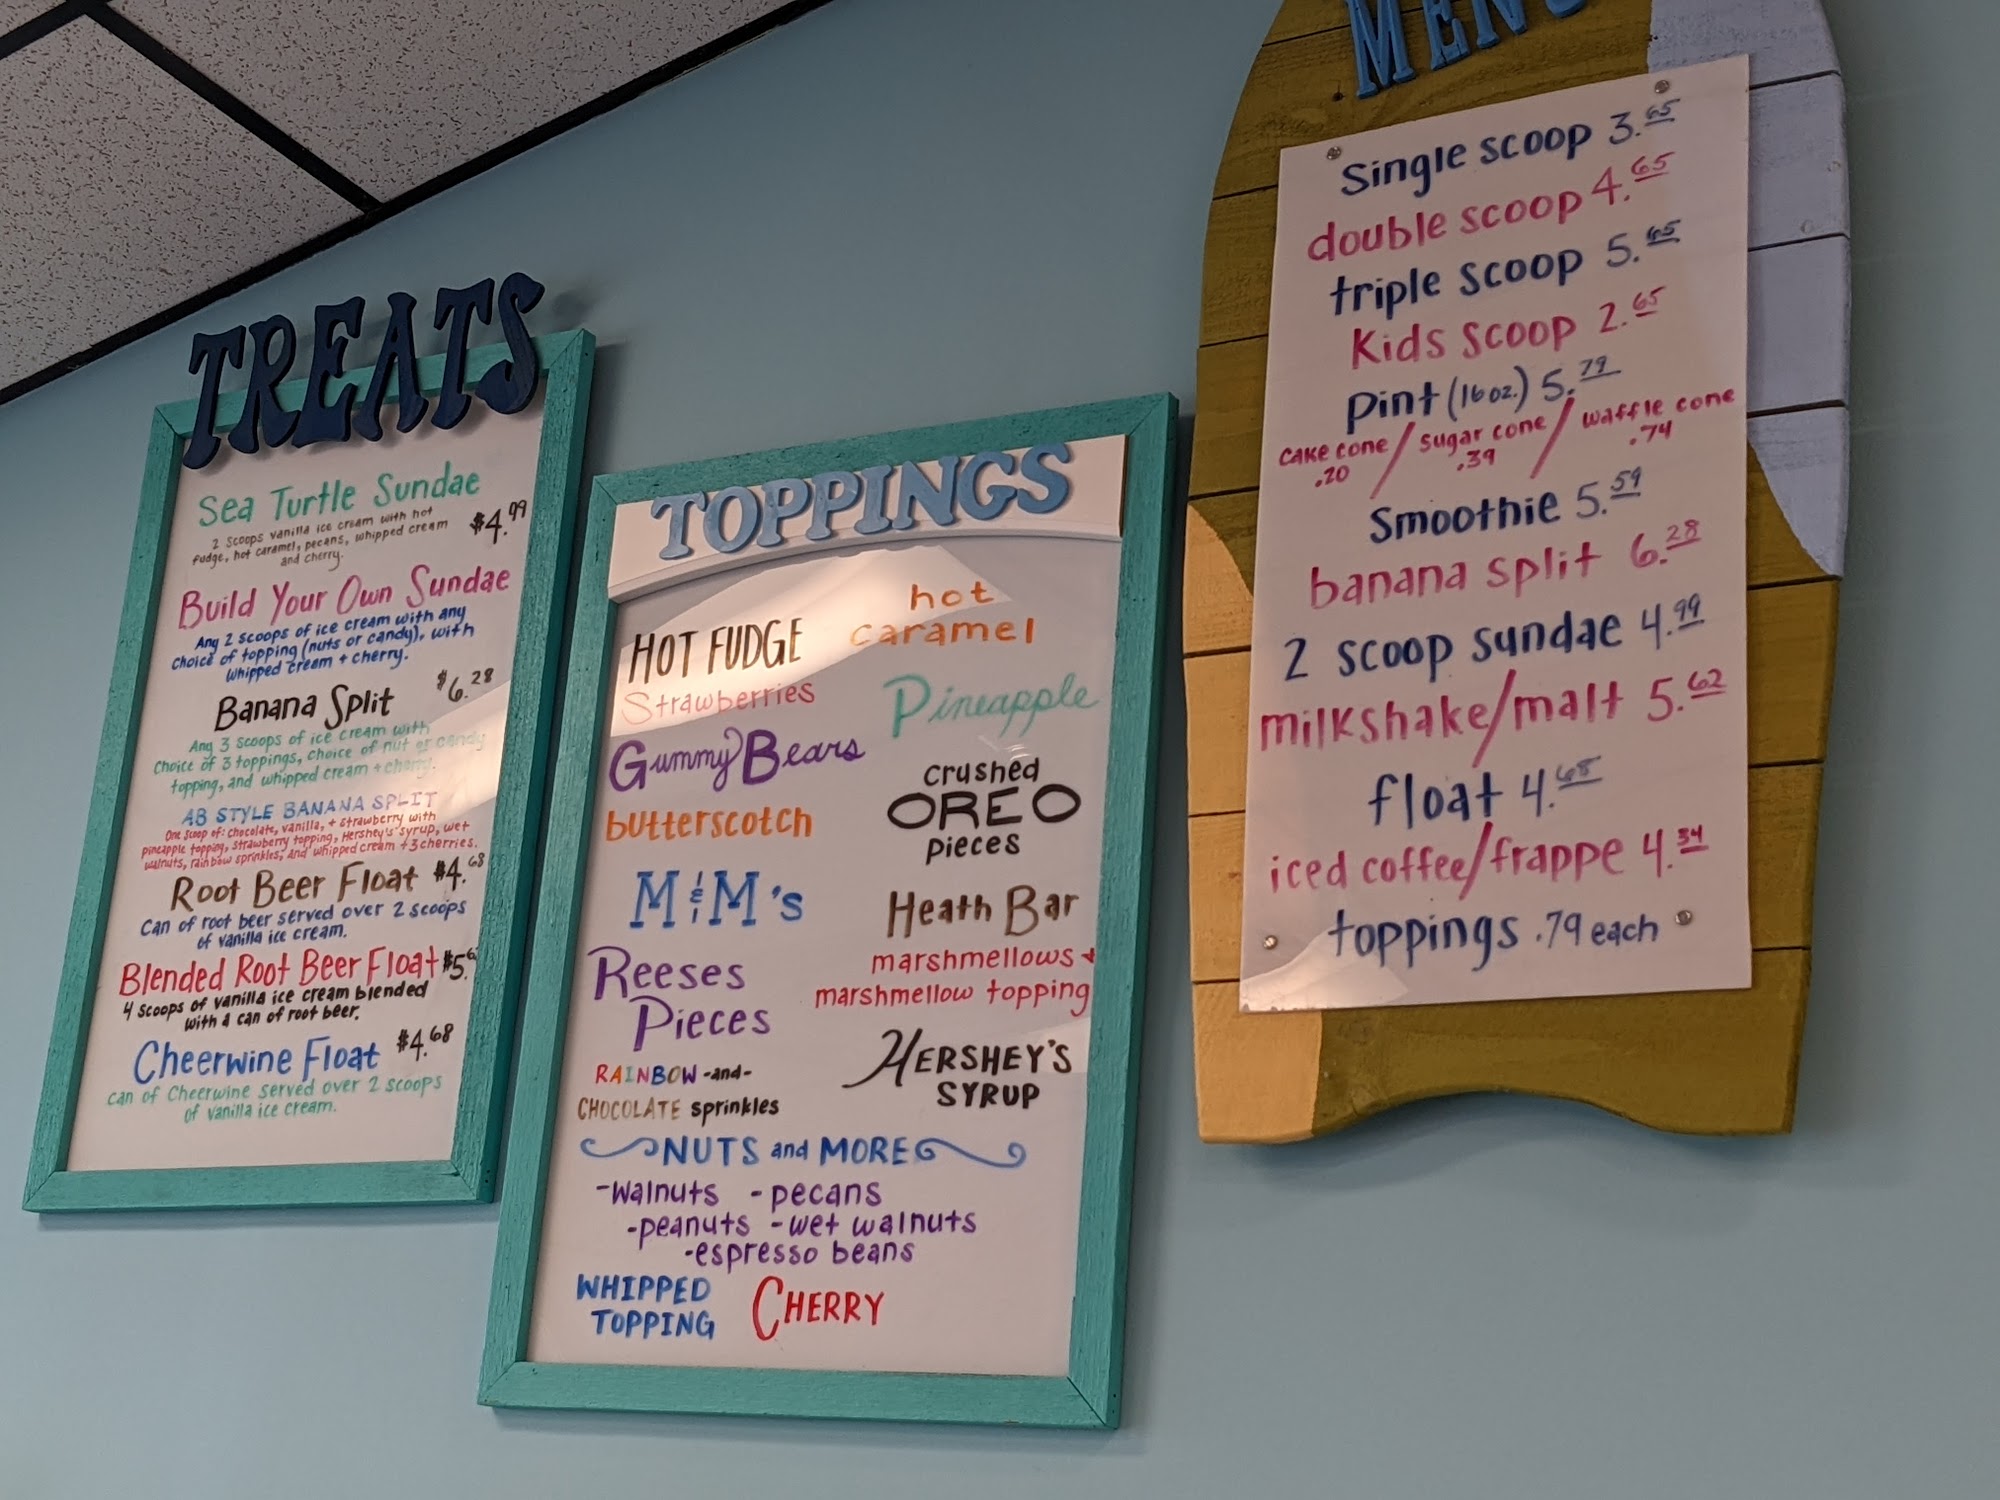 TREATS
Sea Turtle Sundae
2 scoops vanilla ice cream with hot
fudge, hot caramel, pecans, whipped cream
and cherry.
$4.99
Build Your Own Sundae
Any 2 scoops of ice cream with any
choice of topping (nuts or candy), with
whipped cream + cherry.
Banana Split $6.28
Any 3 scoops of ice cream with
choice of 3 toppings, choice of nut or candy
topping, and whipped cream + cherry.
AB STYLE BANANA SPLIT
One scoop of: chocolate, vanilla, + strawberry with
pineapple topping, strawberry topping, Hershey's syrup, wet
walnuts, rainbow sprinkles, and whipped cream + 3 cherries.
Root Beer Float $4.68
Can of root beer served over 2 scoops
of vanilla ice cream.
Blended Root Beer Float $5.6
4 scoops of vanilla ice cream blended
with a can of root beer.
Cheerwine Float $4.68
can of Cheerwine served over 2 scoops
of vanilla ice cream.
TOPPINGS
HOT FUDGE
hot
caramel
Strawberries
Pineapple
Gummy Bears
crushed
OREO
pieces
butterscotch
M&M's
Heath Bar
Reeses
Pieces
marshmellows +
marshmellow topping
RAINBOW -and-
CHOCOLATE sprinkles
HERSHEY'S
SYRUP
NUTS and MORE
-walnuts -pecans
-peanuts -wet walnuts
-espresso beans
WHIPPED
TOPPING
CHERRY
MENU
Single scoop 3.65
double scoop 4.65
triple scoop 5.65
Kids scoop 2.65
pint (16oz.) 5.79
cake cone / sugar cone / waffle cone
.20 .39 .74
Smoothie 5.59
banana split 6.28
2 scoop sundae 4.99
milkshake/malt 5.62
float 4.68
iced coffee/frappe 4.34
toppings .79 each